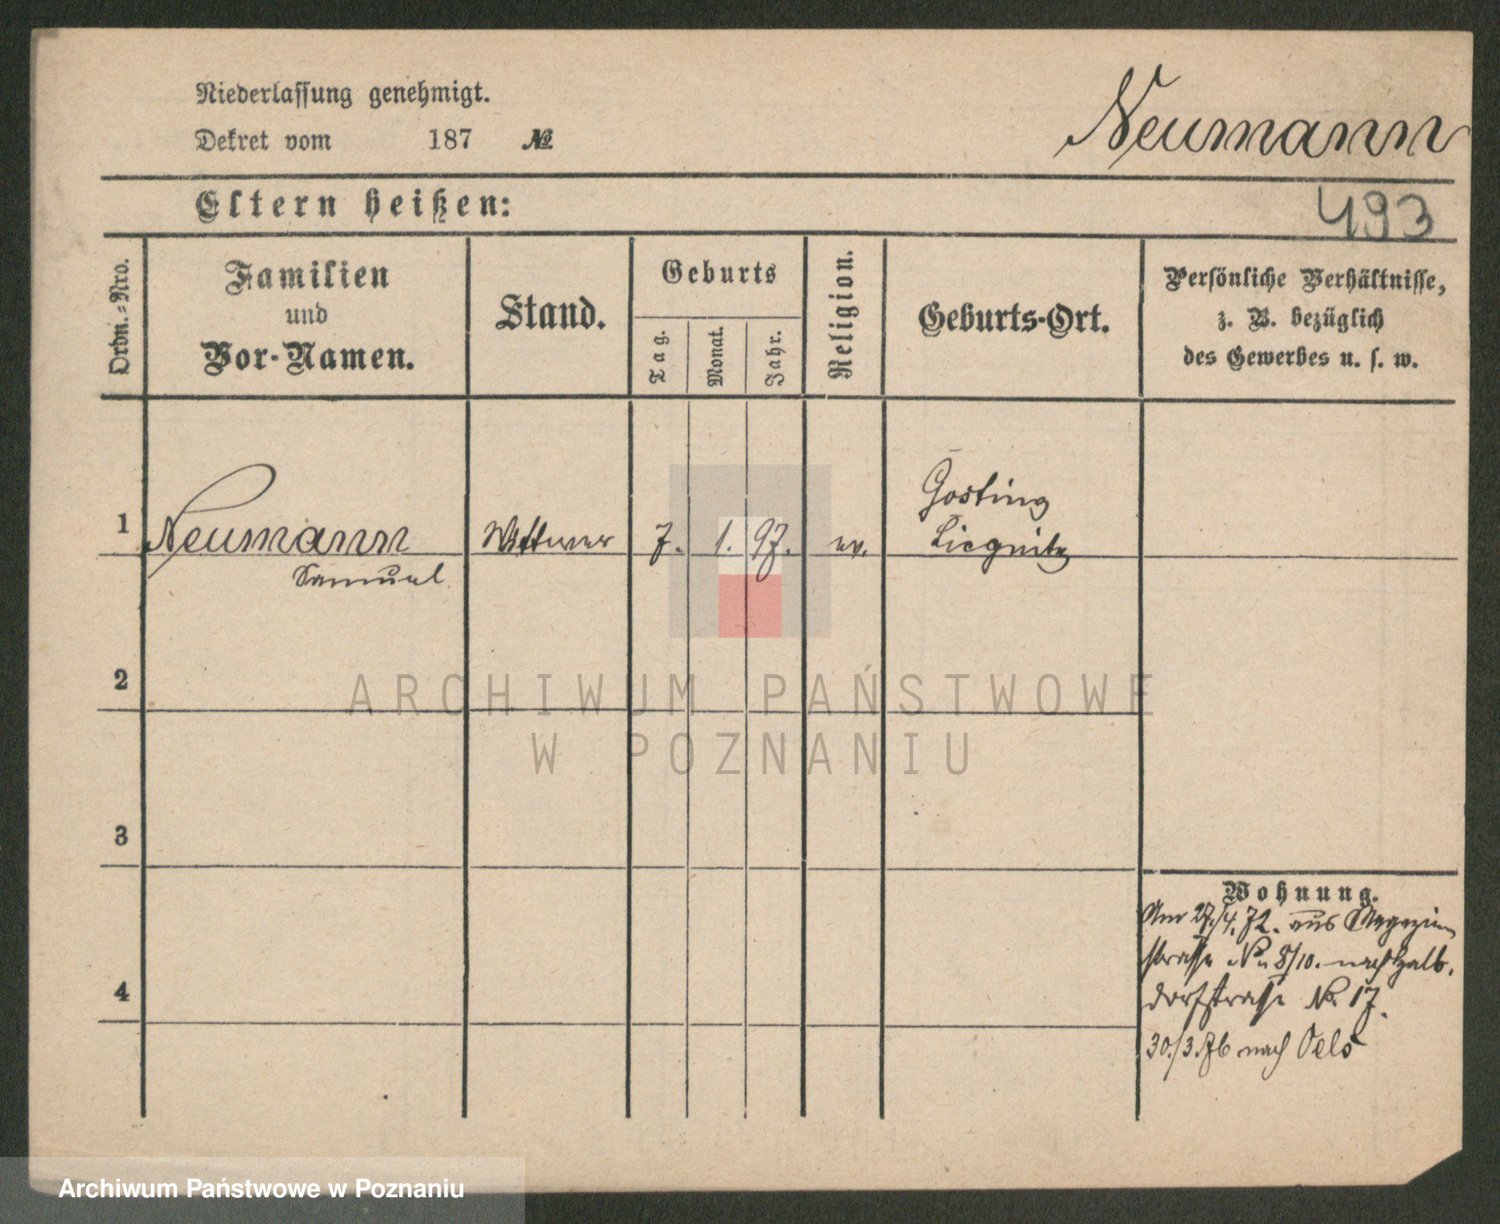 Niederlassung genehmigt.
Dekret vom 187 №
Neumann
Eltern heißen:
493
Ordn.-Nro.
Familien
und
Vor-Namen.
Stand.
Geburts
Tag.
Monat.
Jahr.
Religion.
Geburts-Ort.
Persönliche Verhältnisse,
z. B. bezüglich
des Gewerbes u. s. w.
1 Neumann
Samuel
Wittwer
7. 1. 97. ev.
Liegnitz
2
ARCHIWUM PAŃSTWOWE
W POZNANIU
3
Wohnung.
27/4.72. aus Magazin
strasse No 8/10. nach Halb.
dorfstrasse No. 17.
4
30./3.76 nach Oels
Archiwum Państwowe w Poznaniu